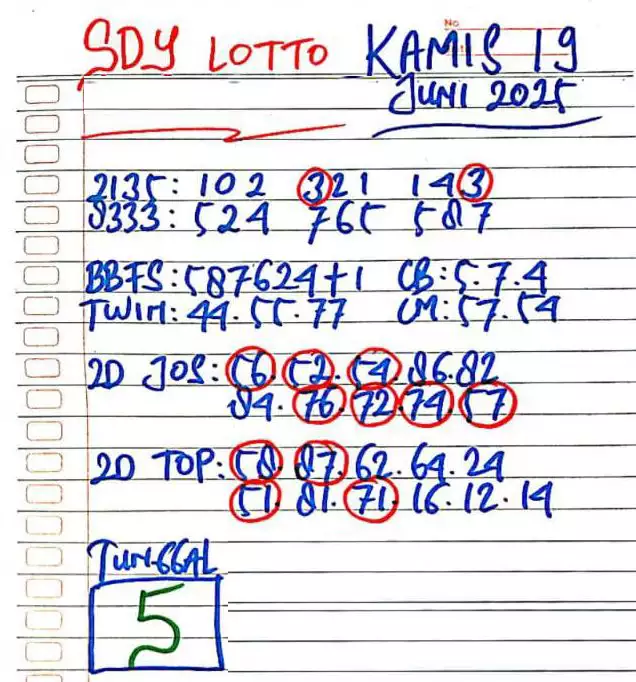 No
SDY LOTTO KAMIS 19
JUNI 2025
2135: 102 321 143
8333: 524 765 587
BBFS: 587624+1 CB: 5.7.4
TWIN: 44.55.77 CM: 57.54
2D JOS: 56.52.54.86.82
84.76.72.74.57
2D TOP: 58.87.62.64.24
51.81.71.16.12.14
TUNGGAL
5